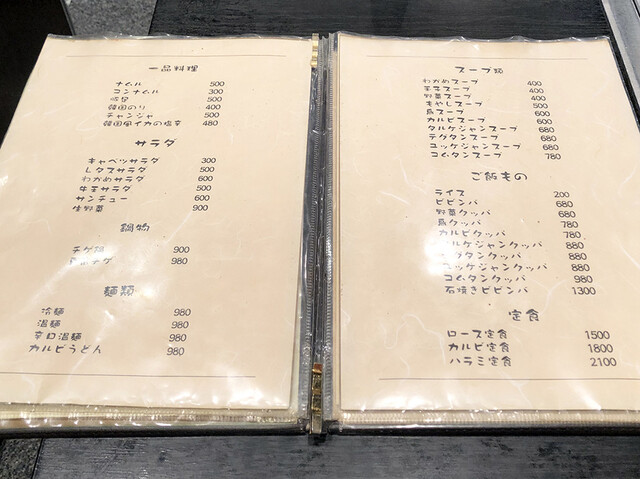 一品料理
ナムル 500
コンナムル 300
500
韓国のり 400
チャンジャ 500
韓国風イカの塩辛 480
サラダ
キャベツサラダ 300
レタスサラダ 500
わかめサラダ 600
牛玉サラダ 500
サンチュー 600
生野菜 900
鍋物
チゲ鍋 900
980
麺類
冷麺 980
温麺 980
辛口温麺 980
カルビうどん 980
スープ類
わかめスープ 400
玉子スープ 400
野菜スープ 400
もやしスープ 500
スープ 600
カルビスープ 600
タルケジャンスープ 680
テグタンスープ 680
ユッケジャンスープ 680
コムタンスープ 780
ご飯もの
ライス 200
ビビンバ 680
野菜クッパ 680
クッパ 780
カルビクッパ 780
タルケジャンクッパ 880
テグタンクッパ 880
ユッケジャンクッパ 880
コムタンクッパ 980
石焼きビビンバ 1300
定食
ロース定食 1500
カルビ定食 1800
ハラミ定食 2100